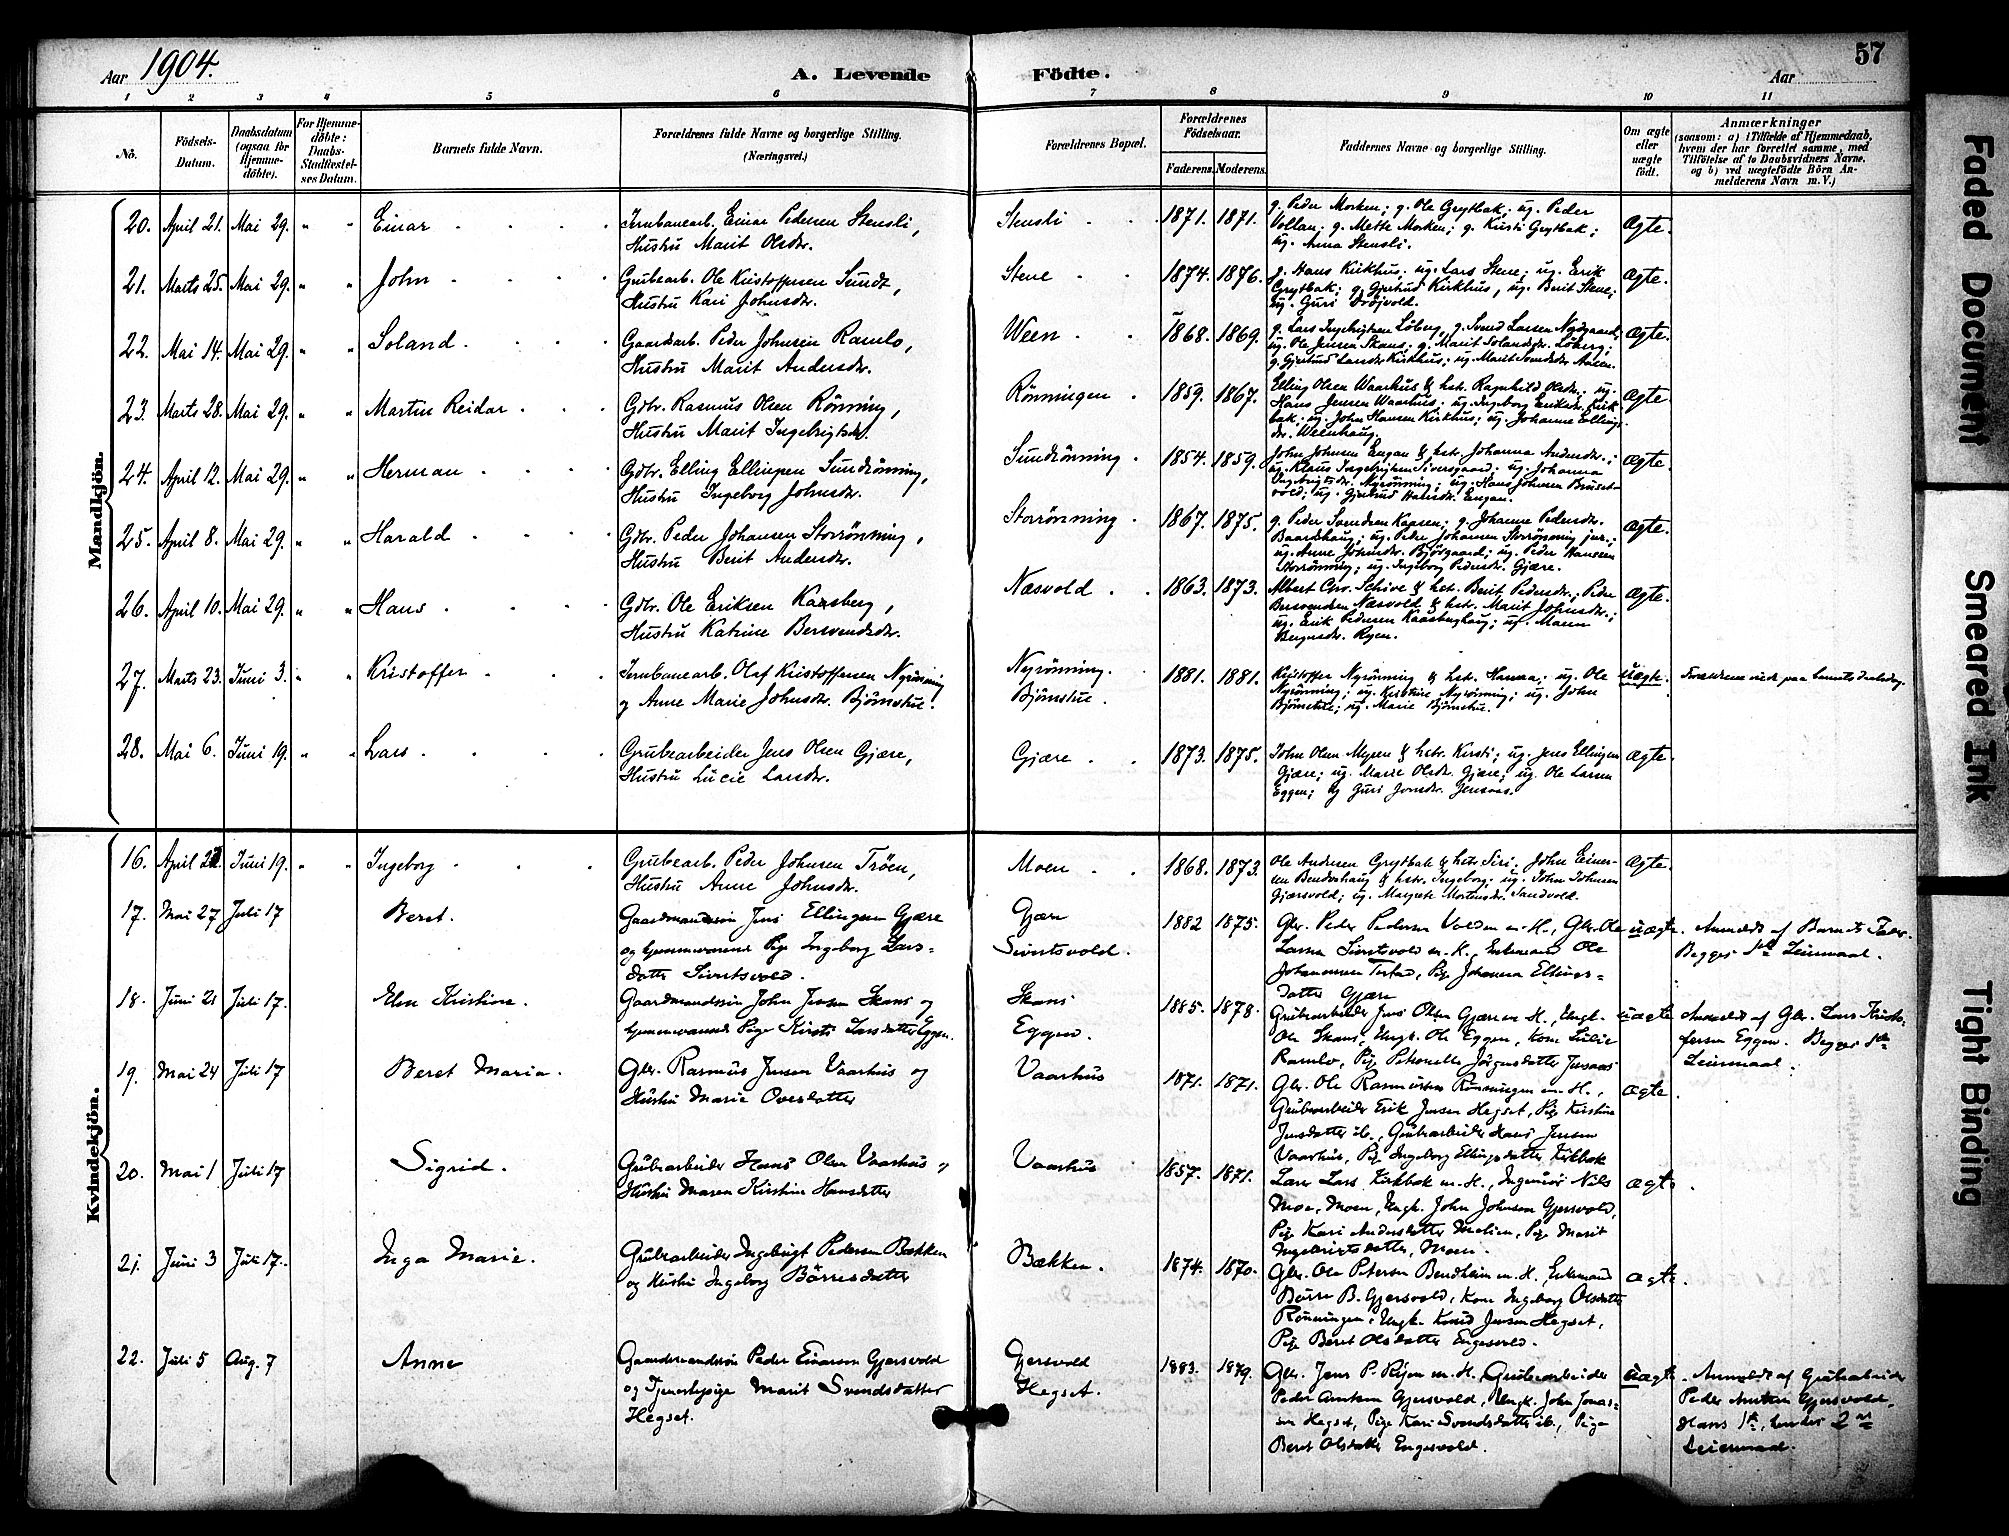 Aar 1904.
A. Levende Födte.
Aar
57
1 2 3 4 5 6 7 8 9 10 11
No.
Födsels-Datum.
Daabsdatum (ogsaa for Hjemmedöbte).
For Hjemmedöbte: Daabs-Stadfæstelses Datum.
Barnets fulde Navn.
Forældrenes fulde Navne og borgerlige Stilling. (Næringsvei.)
Forældrenes Bopæl.
Forældrenes Födselsaar.
Faderens. Moderens.
Faddernes Navne og borgerlige Stilling.
Om ægte eller uægte födt.
Anmærkninger
(saasom: a) i Tilfælde af Hjemmedaab, hvem der har forrettet samme, med Tilföielse af to Daabsvidners Navne, og b) ved uægtefödte Börn Anmelderens Navn m. V.)
Mandkjön.
20. April 21. Mai 29. " " Einar
Jernbanearb. Einar Pedersen Stensli,
Hustru Marit Olsdr.
Stensli 1871. 1871.
g. Peder Morken; g. Ole Grytbak; ug. Peder
Vollan; g. Mette Morken; g. Kirsti Grytbak;
ug. Anna Stensli.
Ægte.
21. Marts 25. Mai 29. " " John
Grubearb. Ole Kristoffersen Sundt,
Hustru Kari Johnsdr.
Stene 1874. 1876.
g. Hans Kirkhus; ug. Lars Stene; ug. Erik
Grytbak; g. Gjertrud Kirkhus, ug. Berit Stene;
ug. Guri
Ægte.
22. Mai 14. Mai 29. " " Soland
Gaardarb. Peder Johnsen Ramlo,
Hustru Marit Andersdr.
Ween 1868. 1869.
g. Lars Ingebrigtsen Löberg, g. Svend Larsen
ug. Ole Jensen Skans; g. Marit Solandsdr. Löberg;
g. Gjertrud Larsdr Kirkhus; ug. Marit Svendsdr.
Ægte.
23. Marts 28. Mai 29. " " Martin Reidar
Gdbr. Rasmus Olsen Rönning,
Hustru Marit Ingebrigtsdr.
Rönningen 1859. 1867.
Elling Olsen Waarhus & hstr. Ragnhild Olsdr.; ug.
Hans Jensen Waarhus; ug. Ingeborg Eriksdr. Kirk
bak; ug. John Hansen Kirkhus; ug. Johanne Ellings
dr. Weenhaug.
Ægte.
24. April 12. Mai 29. " " Herman
Gdbr. Elling Ellingsen Sundrönning,
Hustru Ingeborg Johnsdr.
Sundrönning 1854. 1859.
John Johnsen Engan & hstr. Johanna Andersdr.;
ug. Klaus Ingebrigtsen Siversgaard; ug. Johanna
Ingebrigtsdr. Nyrönning; ug. Hans Johnsen
vold; ug. Gjertrud Hansdr. Engan.
Ægte.
25. April 8. Mai 29. " " Harald
Gdbr. Peder Johansen Storrönning,
Hustru Berit Andersdr.
Storrönning 1867. 1875.
g. Peder Svendsen Kaasen; g. Johanne Pedersdr.
Baardshaug; ug. Peder Johansen Storrönning jun.;
ug. Anne Johnsdr. Bjørgaard; ug. Peder Hansen
Storrönning; ug. Ingeborg Pedersdr. Gjære.
Ægte.
26. April 10. Mai 29. " " Hans
Gdbr. Ole Eriksen Kaasberg,
Hustru Katrine Bersvendsdr.
Næsvold 1863. 1873.
Albert Chr. Schive & hstr. Berit Pedersdr.; Peder
Bersvendsen Næsvold & hstr. Marit Johnsdr.;
ug. Erik Pedersen Kaasberghaug; ug. Maren
Ryen.
Ægte.
27. Marts 23. Juni 3. " " Kristoffer
Jernbanearb. Olaf Kristoffersen Nyrönning
og Anne Marie Johnsdr. Bjørnstue.
Nyrönning.
Bjørnstue.
1881. 1881.
Kristoffer Nyrönning & hstr. Hanna; ug. Ole
Nyrönning; ug. Kristine Nyrönning; ug. John
Bjørnstue; ug. Marie Bjørnstue.
Uægte.
Forældrene viede paa barnets daabsdag.
28. Mai 6. Juni 19. " " Lars
Grubearbeider Jens Olsen Gjære,
Hustru Lucie Larsdr.
Gjære 1873. 1875.
John Olsen Myren & hstr. Kirsti; ug. Jens Ellingsen
Gjære; ug. Marie Olsdr. Gjære; ug. Ole Larsen
Eggen; ug Guri Jonsdr. Jensaas.
Ægte.
Kvindekjön.
16. April Juni 19. " " Ingeborg
Grubearb. Peder Johnsen Tröen,
Hustru Anne Johnsdr.
Moen 1868. 1873.
Ole Andersen Grytbak & hstr. Siri. John Einer-
sen Bendoshaug & hstr. Ingeborg; ug. John Johnsen
Gjærsvold; ug. Margrete Mortensdr. Sandvold.
Ægte.
17. Mai 27 Juli 17 Beret.
Gaardmandssön Jens Ellingsen Gjære
og hjemmeværende Pige Ingeborg Lars-
datter Sivertsvold.
Gjære
Sivertsvold.
1882 1875.
Gbr. Peder Pedersen Volden m. H., Gbr. Ole
Larsen Sivertsvold m. H., Enkemand Ole
Johannesen, Pige Johanna Ellings-
datter Gjære
uægte.
Anmeldt af Barnets Fader.
Begges 1ste Leiermaal.
18. Juni 21 Juli 17. Else Kristine.
Gaardmandssön John Jensen Skans og
hjemmeværende Pige Kirsti Larsdatter Eggen.
Skans
Eggen.
1885. 1878.
Grubearbeider Jens Olsen Gjære m. H., Ungk.
Ole Skans, Ungk. Ole Eggen, Kone Lucie
Ramlo, Pige Petronelle Jörgensdatter Jensaas
uægte
Anmeldt af Gbr. Lars Kristo-
fersen Eggen. Begges 1ste
Leiermaal.
19. Mai 24 Juli 17 Beret Maria.
Gbr. Rasmus Jensen Vaarhus og
Hustru Marie Oversdatter
Vaarhus 1871. 1871.
Gbr. Ole Rasmussen Rönningen m. H.,
Grubearbeider Erik Jensen Hegset, Pige Kirstine
Jensdatter ib., Grubearbeider Hans Jensen
Vaarhus, Pige Ingeborg Ellingsdatter Kirkbak
ægte.
20. Mai 1 Juli 17 Sigrid.
Grubearbeider Hans Olsen Vaarhus og
Hustru Maren Kirstine Hansdatter
Vaarhus 1857. 1871.
Lærer Lars Kirkbak m. H., Ingeniör Nils
Moe, Moen, Ungk. John Johnsen Gjersvold,
Pige Kari Andersdatter Melien, Pige Marit
Ingebrigtsdatter, Moen.
ægte.
21. Juni 3 Juli 17. Inga Marie.
Grubearbeider Ingebrigt Pedersen Bækken
og Hustru Ingeborg Börresdatter
Bækken. 1874. 1870.
Gbr. Ole Petersen Bendheim m. H., Enkemand
Börre B. Gjersvold, Kone Ingeborg Olsdatter
Rönningen, Ungk. Knud Jensen Hegset,
Pige Beret Olsdatter Engesvold.
ægte.
22. Juli 5 Aug. 7 Anne
Gaardmandssön Peder Einarsen Gjersvold
og Tjenestepige Marit Svendsdatter
Hegset.
Gjersvold
Hegset.
1883. 1879.
Gbr. Jens P. Ryen m. H., Grubearbeider
Peder Arntsen Gjersvold, Ungk. John Jonas-
sen Hegset, Pige Kari Svendsdatter ib., Pige
Beret Olsdatter Engesvold.
uægte.
Anmeldt af Grubearbeider
Peder Arntsen Gjersvold.
Hans 1ste, hendes 2det
Leiermaal.
Faded Document
Smeared Ink
Tight Binding